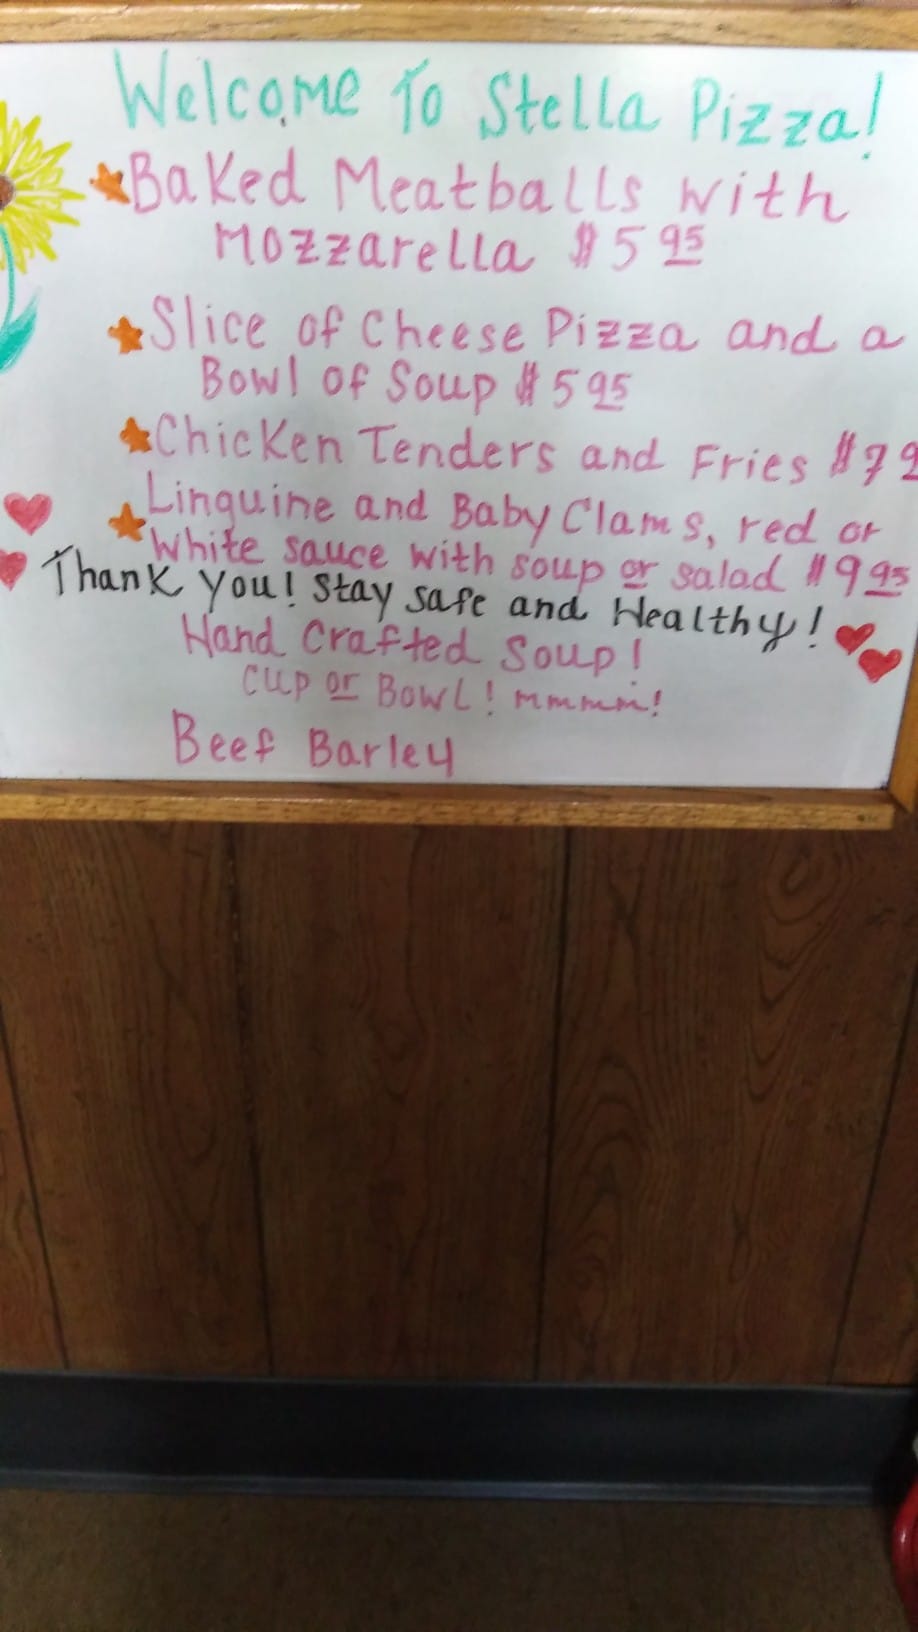 Welcome To Stella Pizza!
Baked Meatballs with
Mozzarella $5 95
Slice of Cheese Pizza and a
Bowl of Soup $5 95
Chicken Tenders and Fries $7 9
Linguine and Baby Clams, red or
White sauce with soup or salad $9 95
Thank you! Stay safe and Healthy!
Hand Crafted Soup!
Cup or Bowl! mmmm!
Beef Barley